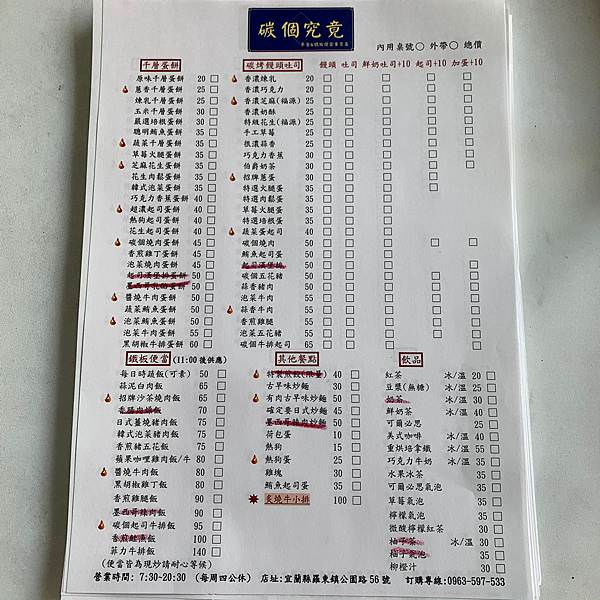 碳個究竟
內用桌號○ 外帶○ 總價
千層蛋餅
原味千層蛋餅 20
蔥香千層蛋餅 25
煉乳千層蛋餅 25
玉米千層蛋餅 30
嚴選培根蛋餅 30
聰明鮪魚蛋餅 30
蔬菜千層蛋餅 35
草莓火腿蛋餅 35
芝麻花生蛋餅 35
花生肉鬆蛋餅 35
韓式泡菜蛋餅 35
巧克力香蕉蛋餅 40
超濃起司蛋餅 40
熱狗起司蛋餅 40
花生起司蛋餅 40
碳個燒肉蛋餅 45
香煎雞丁蛋餅 45
泡菜燒肉蛋餅 45
起司漢堡排蛋餅 50
墨西哥乳酪蛋餅 50
醬燒牛肉蛋餅 50
蔬菜鮪魚蛋餅 50
泡菜鮪魚蛋餅 50
泡菜牛肉蛋餅 55
黑胡椒牛排蛋餅 60
碳烤饅頭吐司 饅頭 吐司 鮮奶吐司+10 起司+10 加蛋+10
香濃煉乳 20
香濃巧克力 25
香濃芝麻(福源) 25
香濃奶酥 25
特級花生(福源) 25
手工草莓 25
很濃蒜香 25
巧克力香蕉 30
伯爵奶茶 30
招牌蔥蛋 30
特選火腿蛋 35
特選肉鬆蛋 35
草莓火腿蛋 35
特選培根蛋 35
蔬菜蛋起司 40
碳個燒肉 50
鮪魚起司蛋 50
起司漢堡排 50
碳個五花豬 50
蒜香豬肉 50
泡菜牛肉 55
蒜香牛肉 55
香煎雞腿 55
泡菜五花豬 55
碳個牛排起司 65
鐵板便當 (11:00後供應)
每日時蔬飯(可素) 50
蒜泥白肉飯 65
招牌沙茶燒肉飯 70
香腸肉燥飯 75
日式薑燒豬肉飯 75
韓式泡菜豬肉飯 75
香煎豬五花飯 75
蘋果咖哩雞肉飯/牛 80
醬燒牛肉飯 80
黑胡椒雞丁飯 80
香煎雞腿飯 90
墨西哥辣肉飯 90
碳個起司牛排飯 95
香煎鮭魚飯 100
菲力牛排飯 140
(便當皆為現炒請耐心等候)
其他餐點
特製煎餃(限量) 40
古早味炒麵 30
有肉古早味炒麵 45
確定要日式炒麵 45
墨西哥辣肉炒麵 50
荷包蛋 10
熱狗 15
熱狗蛋 25
雞塊 30
鮪魚起司蛋 35
炙燒牛小排 100
飲品
紅茶 冰/溫 20
豆漿(無糖) 冰/溫 25
奶茶 冰/溫 30
鮮奶茶 冰/溫 40
可爾必思 25
美式咖啡 冰/溫 40
重烘培拿鐵 冰/溫 55
巧克力牛奶 冰/溫 35
水果冰茶 35
可爾必思氣泡 35
草莓氣泡 35
檸檬氣泡 35
微酸檸檬紅茶 30
柚子茶 冰/溫 30
柚子氣泡 35
柳橙汁 30
營業時間: 7:30-20:30 (每周四公休) 店址:宜蘭縣羅東鎮公園路56號 訂購專線:0963-597-533